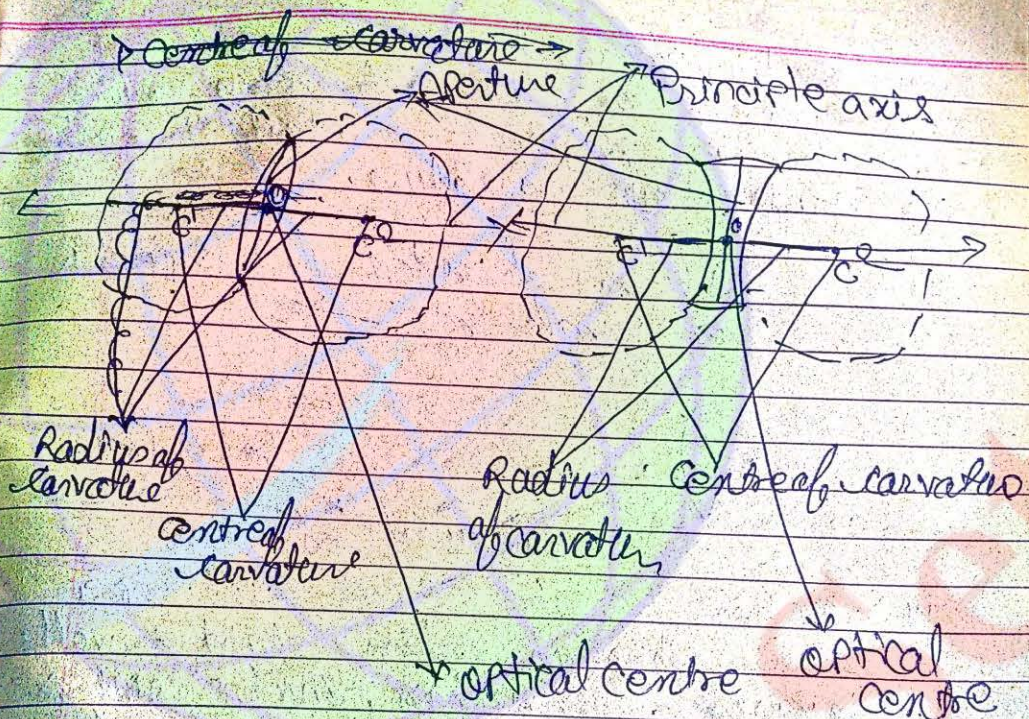 Centre of carvature →
Aperture
Principle axis
O
C1
C2
C1
O
C2
Radius of
carvature
centre of
carvature
Radius
of carvatur
Centre of carvatur
optical centre
optical
centre